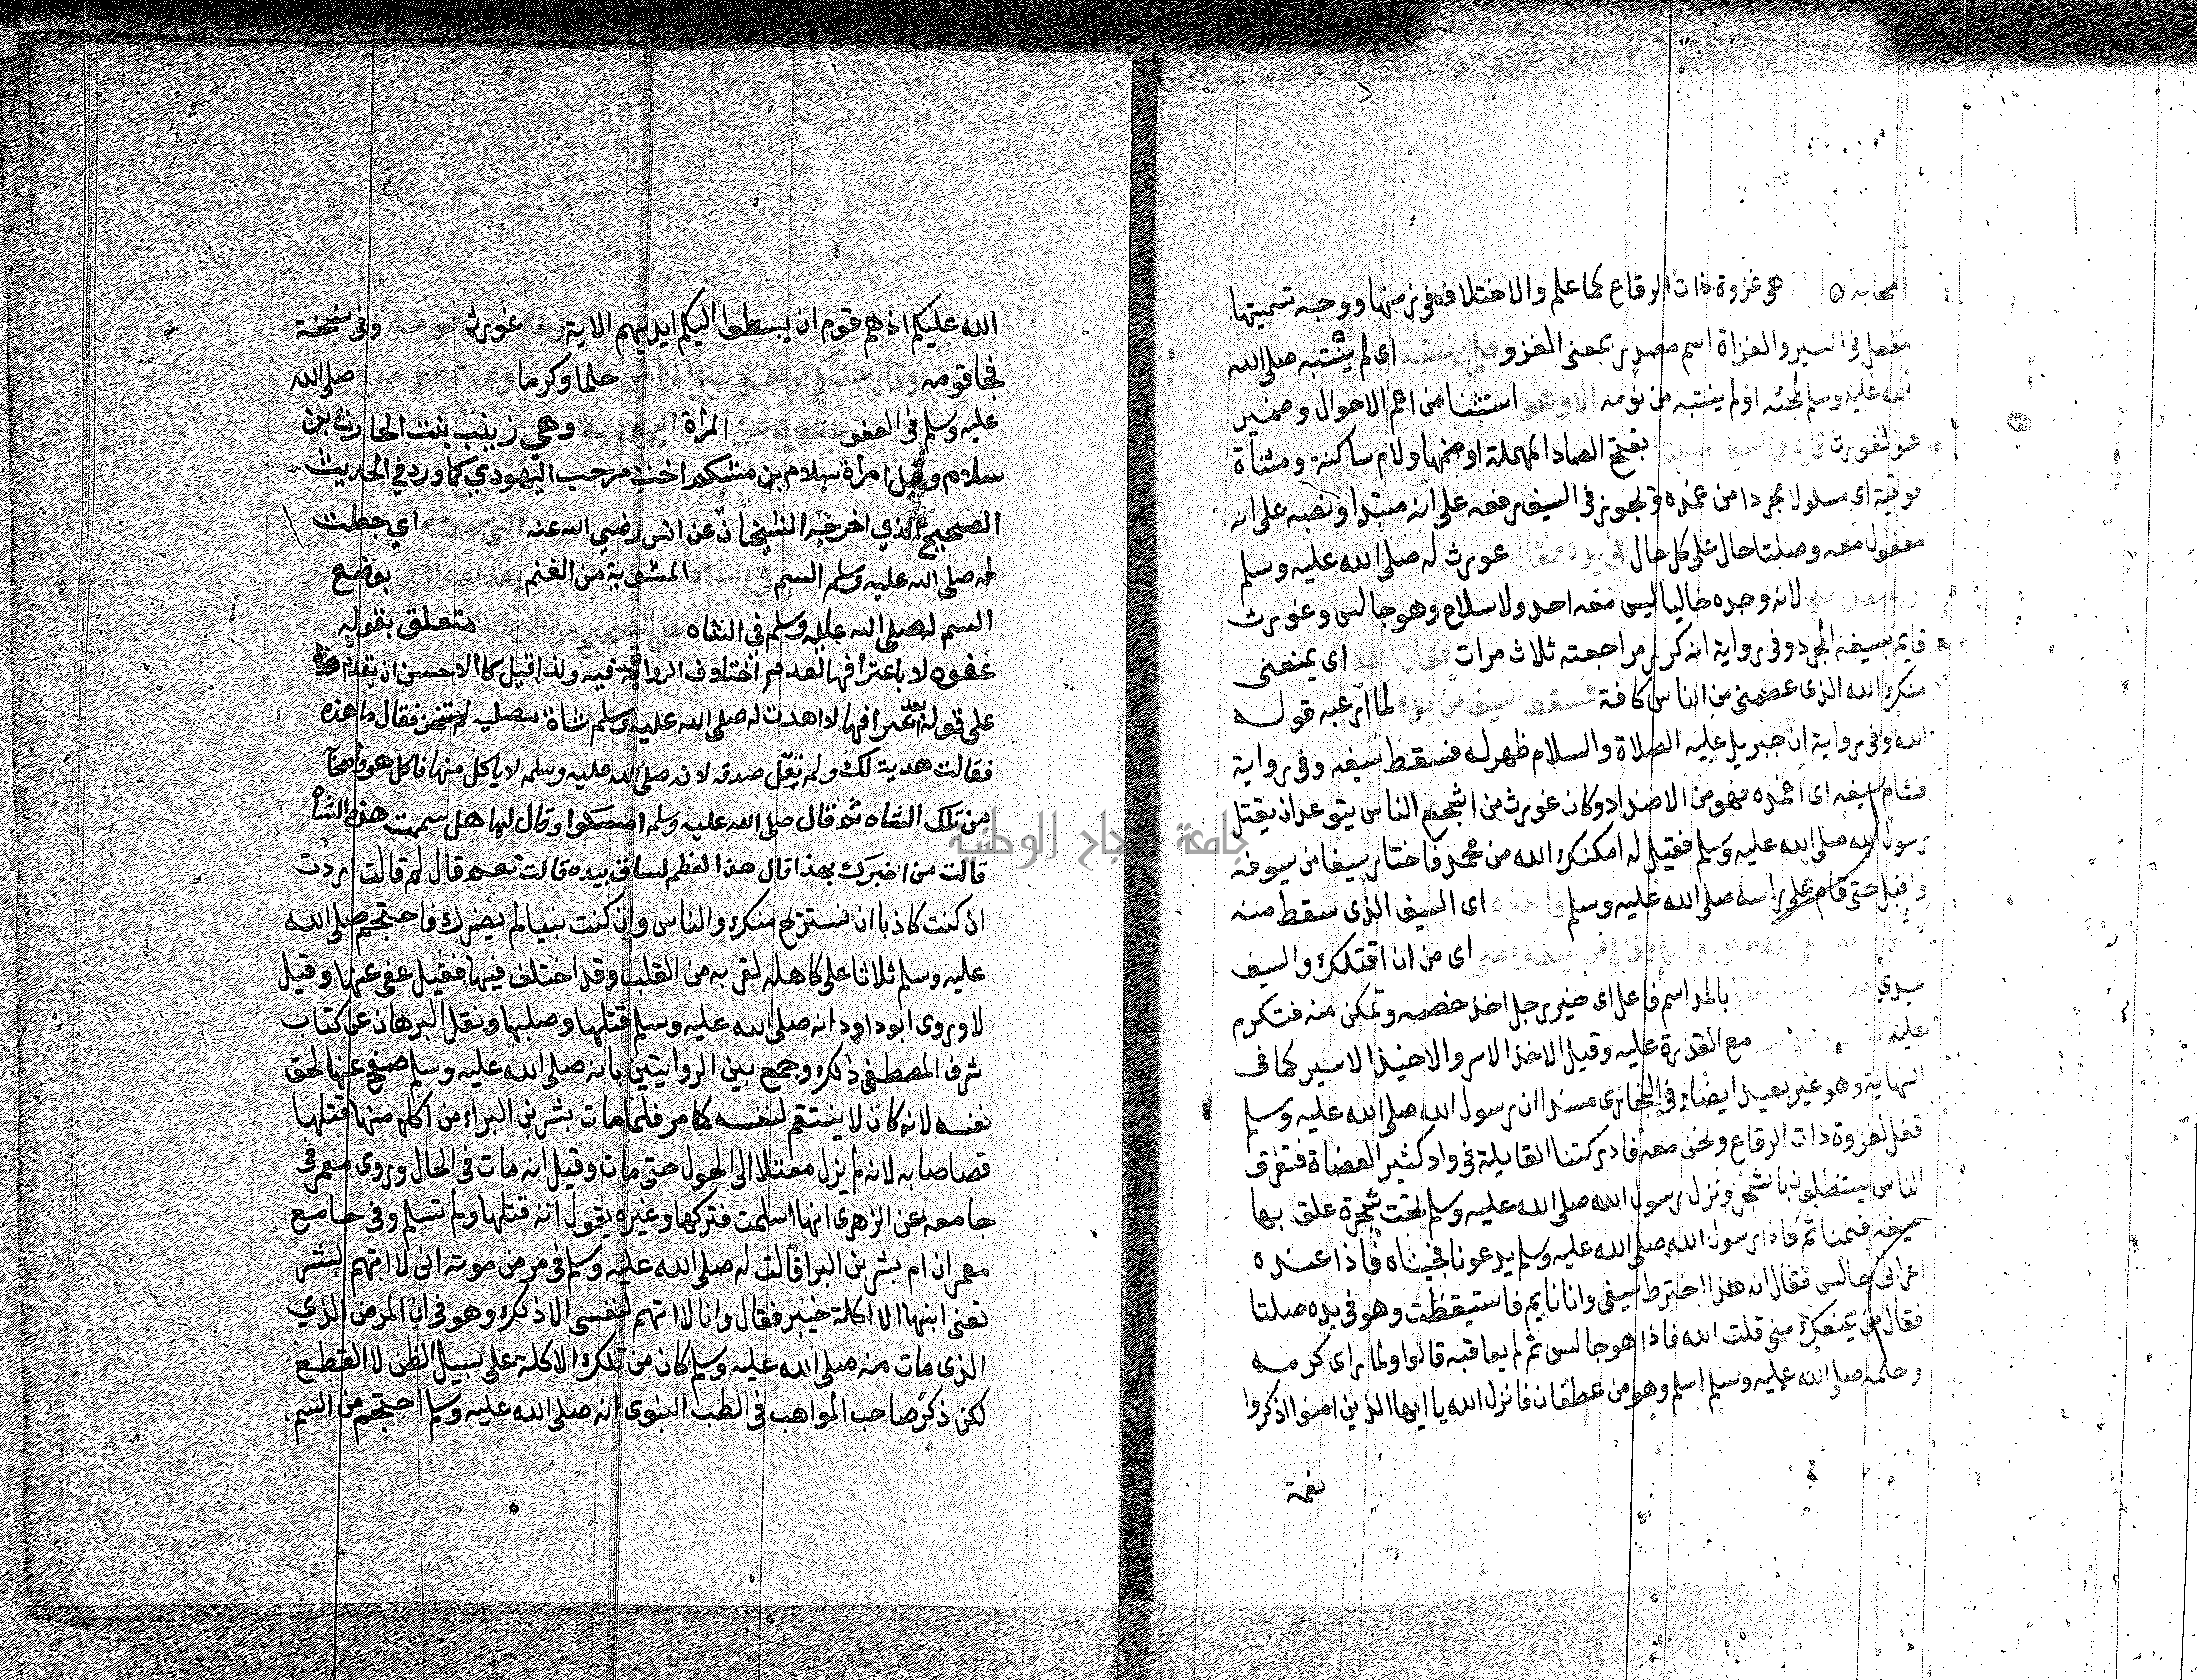 هو غزوة ذات الرقاع كما علم والاختلاف في زمنها ووجه تسميتها
السير والغزاة اسم مصدر بمعنى الغزو فلم ينتبه اى لم ينتبه صلى الله
عليه وسلم لجئه اولم ينتبه من نومه الا وهو استثنا من اعم الاحوال وضمير
هو لغورث قايم والسيف بفتح الصاد المهملة اوضمها ولام ساكنة ومثناة
فوقية اى مسلولا مجردا من غمده وتجوز فى السيف رفعه على انه مبتدا ونصبه على انه
مفعول معه وصلتا حال على كل حال فى يده فقال غورث له صلى الله عليه وسلم
لانه وجده خاليا ليس معه احد ولا سلاح وهو جالس وغورث
قايم بسيفه المجرد وفى رواية انه كرر مراجعته ثلاث مرات فقال الله اى يمنعنى
منكرك الله الذى عصمنى من الناس كافة فسقط السيف من يده لما ارعبه قوله
الله وفى رواية ان جبريل عليه الصلاة والسلام ظهر له فسقط سيفه وفى رواية
فشام سيفه اى اغمده فهو من الاضداد وكان غورث من اشجع الناس يتوعد ان يقتل
رسول الله صلى الله عليه وسلم فقيل له امكنك الله من محمد فاختار سيفا من سيوفه
واقبل حتى قام على راسه صلى الله عليه وسلم فاخذه اى السيف الذى سقط منه
وقال من يمنعك منى اى من ان اقتلك والسيف
بيدي بالمد اسم فاعل اى خير رجل اخذ خصمه وتمكن منه فتكرم
عليه مع القدرة عليه وقيل الاخذ الاسر والاخيذ الاسير كما فى
النهاية وهو غير بعيد ايضا فى المغازى مسندا ان رسول الله صلى الله عليه وسلم
قفل لغزوة ذات الرقاع ونحن معه فادركتنا القايلة فى واد كثير العضاة فتفرق
الناس يستظلون بالشجر ونزل رسول الله صلى الله عليه وسلم تحت شجرة علق بها
سيفه فنمنا ثم فاذا رسول الله صلى الله عليه وسلم يدعونا فجيناه فاذا عنده
اعرابى جالس فقال ان هذا اخترط سيفى وانا نايم فاستيقظت وهو فى يده صلتا
فقال من يمنعك منى قلت الله فاذا هو جالس ثم لم يعاقبه قالوا ولما راى كرمه
وحلمه صلى الله عليه وسلم اسلم وهو من غطفان فانزل الله يا ايها الذين امنوا اذكروا
نعمة
الله عليكم اذ هم قوم ان يبسطوا اليكم ايديهم الاية وجا غورث قومه وفى نسخة
فجا قومه وقال جئتكم من عند خير الناس حلما وكرما ومن عظيم خبره صلى الله
عليه وسلم فى العفو عفوه عن المرأة اليهودية وهي زينب بنت الحارث بن
سلام وقيل امرأة سلام بن مشكم اخت مرحب اليهودي كما ورد في الحديث
الصحيح الذي اخرجه الشيخان عن انس رضي الله عنه التى سمته اي جعلت
له صلى الله عليه وسلم السم في الشاة المشوية من الغنم بعد اعترافها بوضع
السم له صلى الله عليه وسلم في الشاه على الصحيح من الرواية متعلق بقوله
عفوه لا باعترافها لعدم اختلاف الرواية فيه ولذا قيل كان الاحسن ان يقدم هذا
على قوله بعد اعترافها لا اهدت له صلى الله عليه وسلم شاة مصلية فقال ما هذه
فقالت هدية لك ولم تقل صدقه لانه صلى الله عليه وسلم لا ياكل منها فاكل هو واصحابه
من تلك الشاه ثم قال صلى الله عليه وسلم امسكوا وقال لها هل سممت هذه الشاة
قالت من اخبرك بهذا قال هذا العظم لساق بيده قالت نعم قال لم قالت اردت
ان كنت كاذبا ان نستريح منك والناس وان كنت نبيا لم يضرك فاحتجم صلى الله
عليه وسلم ثلاثا على كاهله لقربه من القلب وقد اختلف فيها فقيل عفى عنها وقيل
لا وروى ابو داود انه صلى الله عليه وسلم قتلها وصلبها ونقل البرهان عن كتاب
شرف المصطفى ذكره وجمع بين الروايتين بانه صلى الله عليه وسلم صفح عنها لحق
نفسه لانه كان لا ينتقم لنفسه كما مر فلما مات بشر بن البراء من اكله منها قتلها
قصاصا به لانه لم يزل معتلا الى الحول حتى مات وقيل انه مات فى الحال وروى معمر فى
جامعه عن الزهرى انها اسلمت فتركها وغيره يقول انه قتلها ولم تسلم وفى جامع
معمر ان ام بشر بن البرا قالت له صلى الله عليه وسلم فى مرض موته انى لا اتهم لبشر
تعنى ابنها الا اكلة خيبر فقال وانا لا اتهم لنفسى الا ذلك وهو فى ان المرض الذي
الذى مات منه صلى الله عليه وسلم كان من تلك الاكلة على سبيل الظن لا القطع
لكن ذكر صاحب المواهب فى الطب النبوى انه صلى الله عليه وسلم احتجم من السم
جامعة النجاح الوطنية